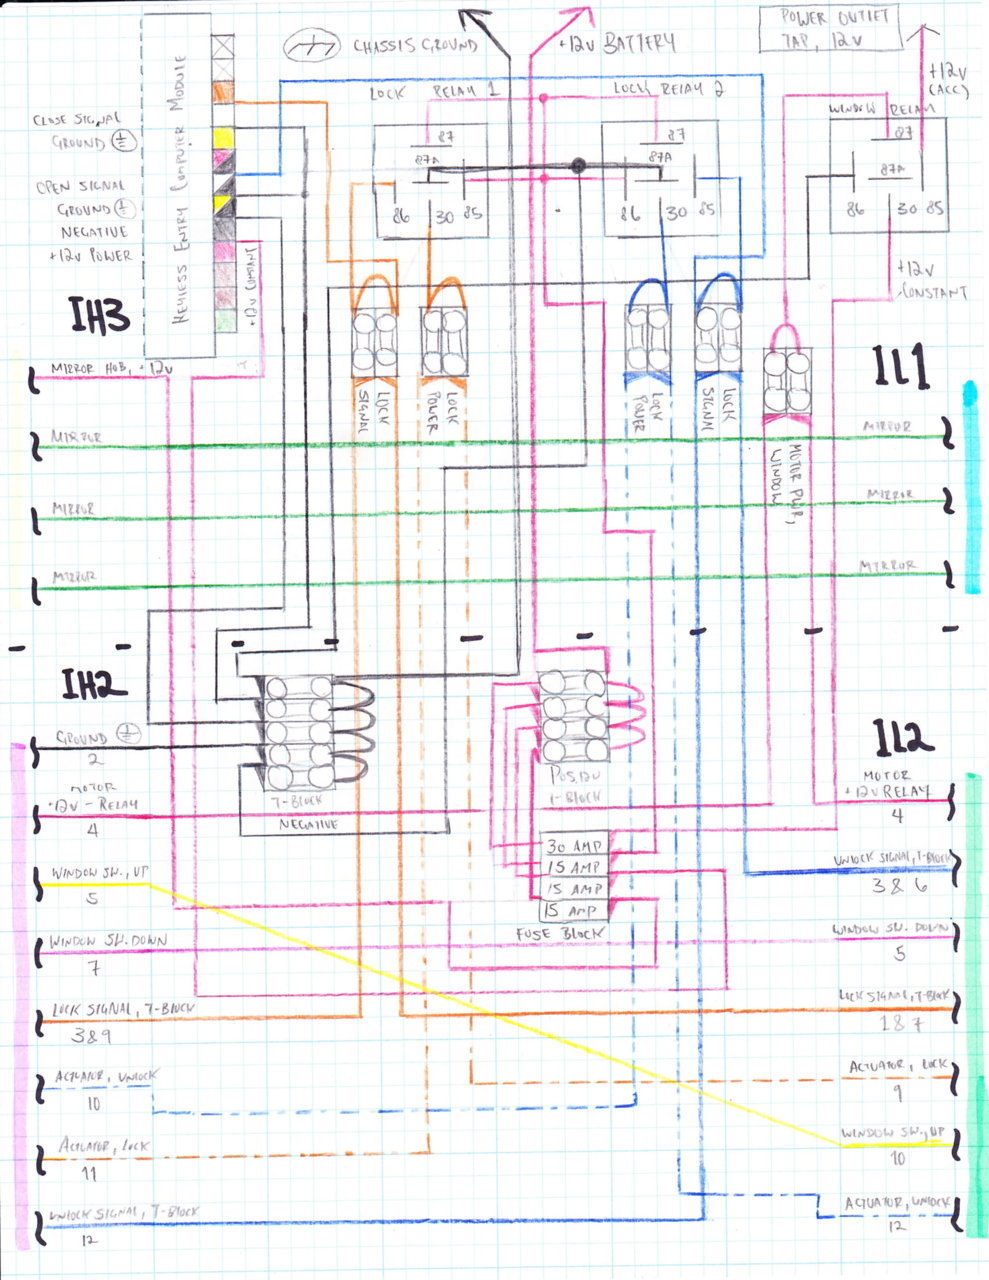 POWER OUTLET
TAP, 12V
CHASSIS GROUND
+12V BATTERY
+12V
(ACC)
KEYLESS ENTRY COMPUTER MODULE
LOCK RELAY 1
LOCK RELAY 2
WINDOW RELAY
CLOSE SIGNAL
GROUND
OPEN SIGNAL
GROUND
NEGATIVE
+12V POWER
87
87A
86
30
85
87
87A
86
30
85
87
87A
86
30
85
+12V
CONSTANT
IH3
IL1
MIRROR HUB, +12V
LOCK
SIGNAL
LOCK
POWER
LOCK
POWER
LOCK
SIGNAL
MOTOR PWR,
WINDOW
MIRROR
MIRROR
MIRROR
MIRROR
MIRROR
MIRROR
IH2
IL2
GROUND
2
MOTOR
+12V - RELAY
4
T-BLOCK
NEGATIVE
POS, 12V
T-BLOCK
MOTOR
+12V RELAY
4
30 AMP
15 AMP
15 AMP
15 AMP
FUSE BLOCK
UNLOCK SIGNAL, T-BLOCK
3 & 6
WINDOW SW., UP
5
WINDOW SW. DOWN
7
WINDOW SW. DOWN
5
LOCK SIGNAL, T-BLOCK
3&9
LOCK SIGNAL, T-BLOCK
1&7
ACTUATOR, UNLOCK
10
ACTUATOR, LOCK
9
ACTUATOR, LOCK
11
WINDOW SW., UP
10
UNLOCK SIGNAL, T-BLOCK
12
ACTUATOR, UNLOCK
12